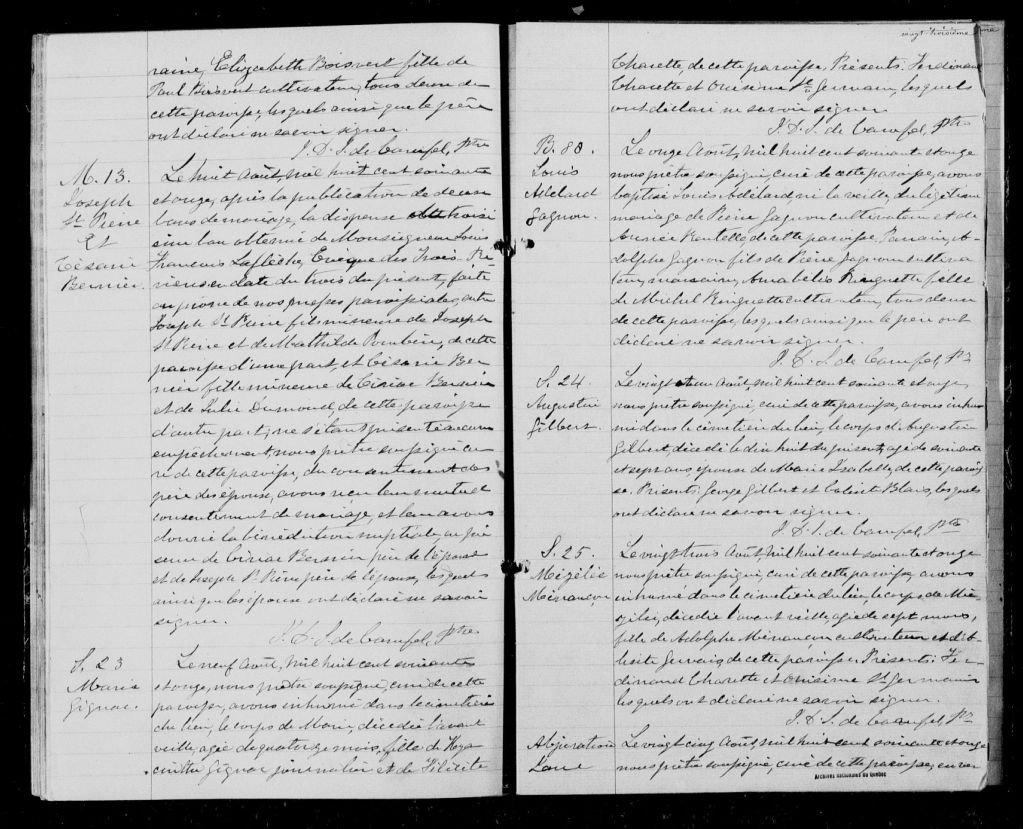 raine, Elizabeth Boisvert fille de
Paul Boisvert cultivateur, tous deux de
cette paroisse, lesquels ainsi que le père
ont déclaré ne savoir signer.
J. D. S. de Camfel, Ptre
M. 13.
Joseph
St. Pierre
Et
Césarie
Bernier.
Le huit Août, mil huit cent soixante
et onze, après la publication de deux
bans de mariage, la dispense du troisi
ème ban obtenue de Monseigneur Louis
François Laflèche, Evêque des Trois-Ri-
vières en date du trois du présent, faite
au prône de nos messes paroissiales, entre
Joseph St Pierre fils mineur de Joseph
St Pierre et de Mathilde, de cette
paroisse d'une part, et Césarie Ber
nier fille mineure de Ciriac Bernier
et de Julie Dumond, de cette paroisse
d'autre part; ne s'étant présenté aucun
empêchement, nous prêtre soussigné cu-
ré de cette paroisse, du consentement des
père des époux, avons reçu leur mutuel
consentement de mariage, et leur avons
donné la bénédiction nuptiale, en pré
sence de Ciriac Bernier père de l'épouse
et de Joseph St Pierre père de l'époux, lesquels
ainsi que les époux ont déclaré ne savoir
signer.
J. D. S. de Camfel, Ptre
S. 23
Marie
Gignac.
Le neuf Août, mil huit cent soixante
et onze, nous prêtre soussigné, curé de cette
paroisse, avons inhumé dans le cimetière
du lieu, le corps de Marie, décédée l'avant
veille, agée de quatorze mois, fille de Hya
cinthe Gignac journalier et de Félicité
vingt-troisième
Charette, de cette paroisse. Présents: Ferdinand
Charette et Onésime St Germain, lesquels
ont déclaré ne savoir signer.
J. D. S. de Camfel, Ptre
B. 88.
Louis
Adélard
Gagnon.
Le onze Août, mil huit cent soixante et onze
nous prêtre soussigné, curé de cette paroisse, avons
baptisé Louis Adélard, né la veille, du légitime
mariage de Pierre Gagnon cultivateur et de
de cette paroisse. Parrain, A-
dolphe Gagnon fils de Pierre Gagnon cultiva
teur, marraine, Annabelis Ringuette fille
de Michel Ringuette cultivateur, tous deux
de cette paroisse, lesquels ainsi que le père ont
déclaré ne savoir signer.
J. D. S. de Camfel, Ptre
S. 24.
Augustin
Gilbert.
Le vingt et un Août, mil huit cent soixante et onze,
nous prêtre soussigné, curé de cette paroisse, avons inhu
mé dans le cimetière du lieu, le corps de Augustin
Gilbert, décédé le dix huit du présent, agé de soixante
et sept ans, époux de Marie Isabelle, de cette parois-
se. Présents: George Gilbert et Calixte Blais, lesquels
ont déclaré ne savoir signer.
J. D. S. de Camfel, Ptre
S. 25.
Mézélie
Ménançon
Le vingt trois Août, mil huit cent soixante et onze
nous prêtre soussigné, curé de cette paroisse, avons
inhumé dans le cimetière du lieu, le corps de Mé-
zélie, décédée l'avant veille, agée de sept mois,
fille de Adolphe Ménançon cultivateur et d'A-
Gervais, de cette paroisse. Présents: Fer-
dinand Charette et Onésime St Germain
lesquels ont déclaré ne savoir signer.
J. D. S. de Camfel, Ptre
Abjuration
Le vingt cinq Août, mil huit cent soixante et onze
nous prêtre soussigné, curé de cette paroisse, en ver
Archives nationales du Québec